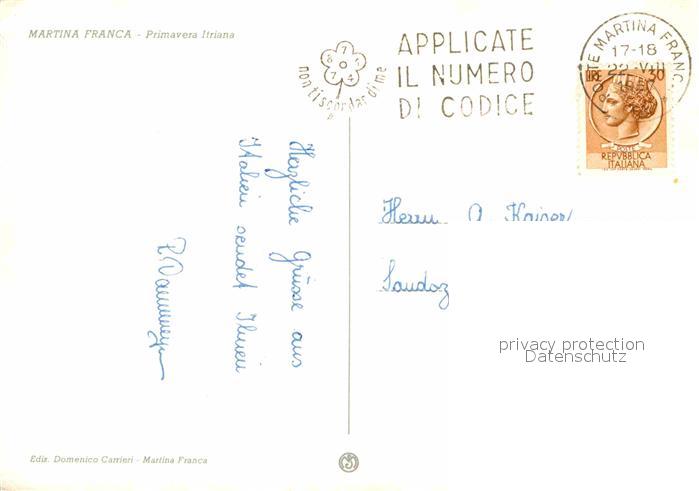 MARTINA FRANCA - Primavera Itriana
APPLICATE
IL NUMERO
DI CODICE
nontiscordardime
POSTE MARTINA FRANCA
17-18
22 VIII
LIRE 30
POSTE
REPVBBLICA
ITALIANA
Herzliche Grüsse aus
Italien sendet Ihnen
Herrn A. Kaiser
Sandoz
privacy protection
Datenschutz
Ediz. Domenico Carrieri - Martina Franca